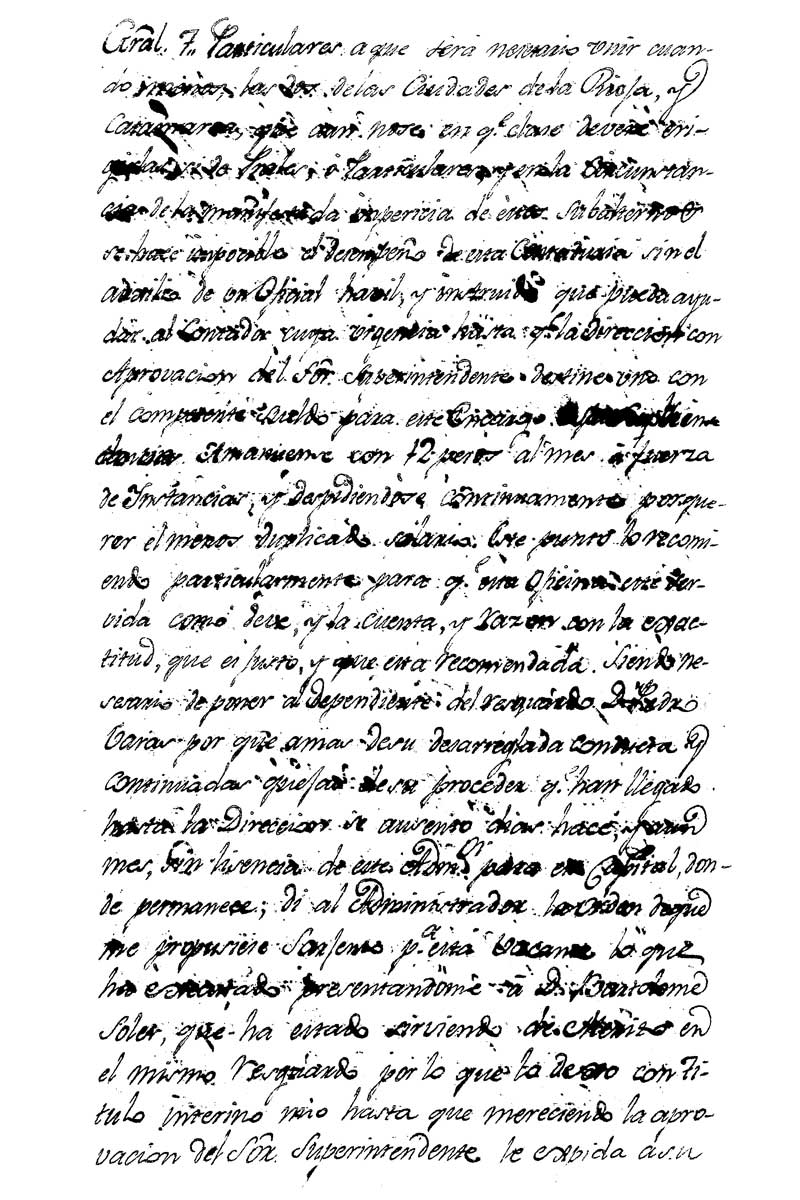 Grãl. 7,, Particulares aque sera nesesario vnir cuan-
do menos, las dos de las Ciudades de la Rioja, y
Catamarca, que aun nose en q.e clase deveré eri-
girlas si de Prales, ó Particulares, y en la circunstan-
cia de la manifestada impericia de estos Subalternos
se hace imposible el desempeño de esta Contaduria sin el
auxilio de un Oficial havil, y instruido que pueda ayu-
dar al Contador cuya urgencia hasta q.e la Direccion con
Aprovacion del Sõr. Superintendente destine uno con
el competente sueldo para este Encargo
Amanuense con 12 pesos al mes á fuerza
de Instancias, y despidiendose continuamente por que-
rer el menos duplicado salario. Este punto lo recomi-
endo particularmente para q.e esta Oficina esté ser-
vida como deve, y la cuenta, y razon con la exac-
titud, que es justo, y que esta recomendada. Siendo ne-
sesario deponer al Dependiente del resguardo D.n Pedro
Varas por que amas desu desarreglada conducta y
continuadas quejas de su proceder q.e han llegado
hasta la Direccion se ausentó dias hace, y aun
mes, sin lisencia de este Adm.or para esa Capital, don-
de permanece; di al Administrador la orden deque
me propusiese Sargento p.a esta vacante lo que
ha executado presentandome á D. Bartolome
Soler, que ha estado sirviendo de Merito en
el mismo Resguardo por lo que lo dexo con Ti-
tulo interino mio hasta que mereciendo la apro-
vacion del Sõr. Superintendente le expida ásu